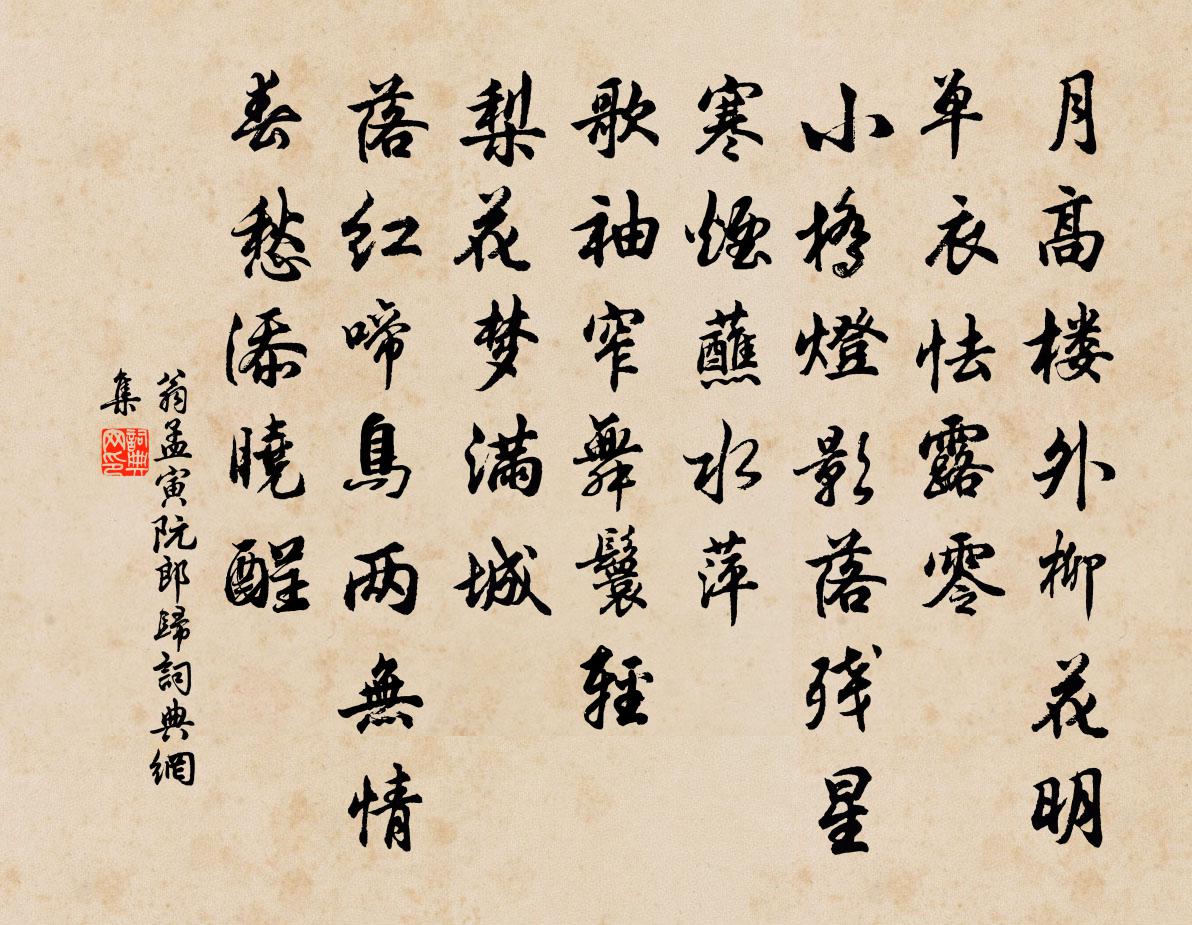 月高楼外柳花明
单衣怯露零
小橋燈影落残星
寒煙蘸水萍
歌袖窄舞鬟輕
梨花梦满城
落红啼鳥两無情
春愁添曉醒
翁孟寅阮郎歸詞典網
集
詞典
网印